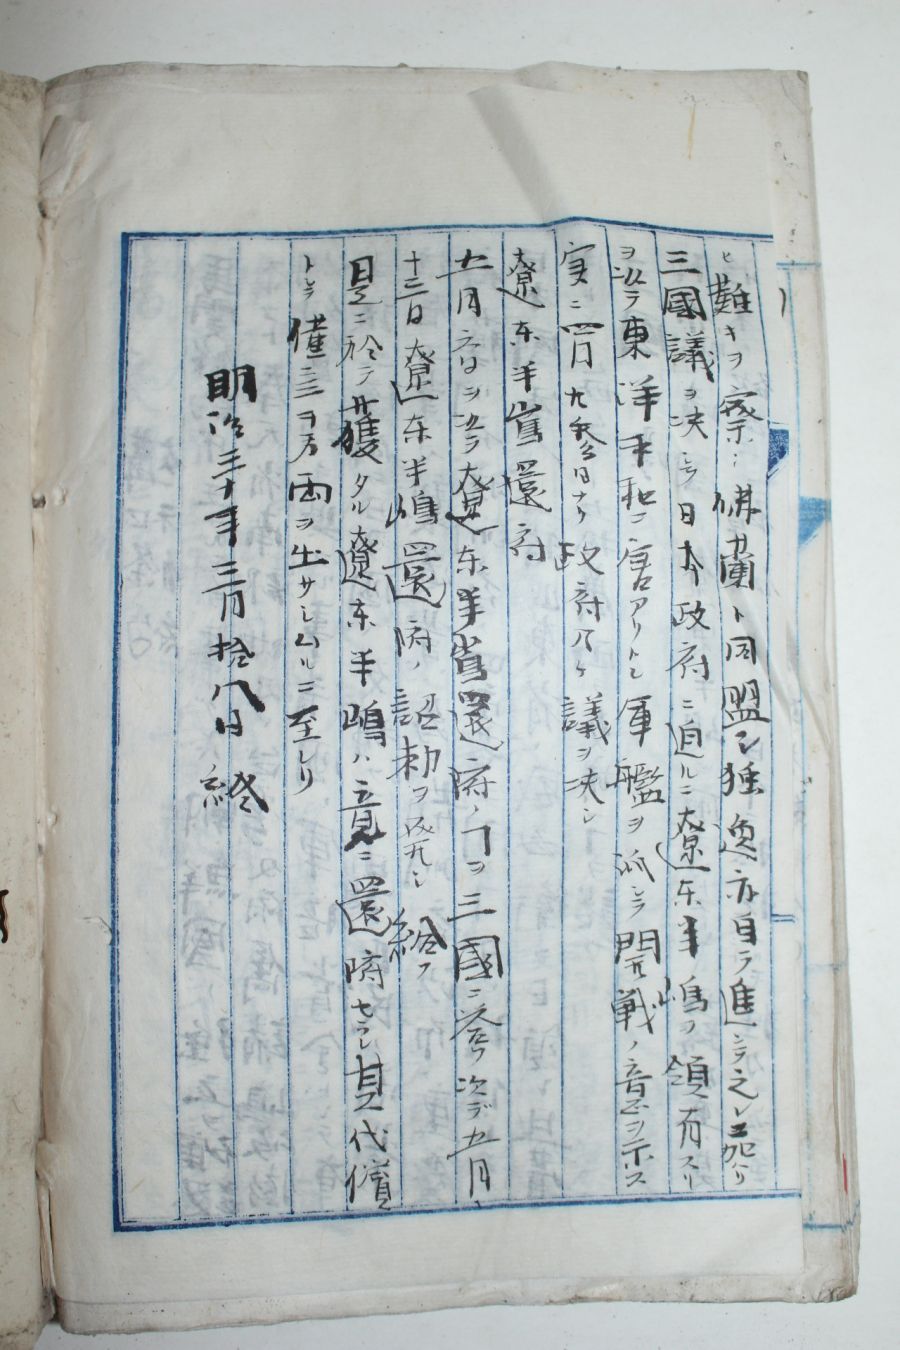 ヒ難キヲ察シ佛蘭ト同盟シ獨逸亦自ラ進ンテ之レニ加ハリ
三國議ヲ决シテ日本政府ニ迫ルニ遼東半嶋ヲ領有スル
ヲ以テ東洋平和ニ害アリトシ軍艦ヲ派シテ開戰ノ意ヲ示ス
実ニ四月廿九日ナリ政府ハ議ヲ决シ
遼東半嶌還府
五月六日ヲ以テ遼東半嶌還府ノヿヲ三國ニ答ヘ次デ五月
十三日遼東半嶋還府ノ詔勅ヲ発シ給フ
是ニ於テ獲タル遼東半嶋ハ竟ニ還府セラレ其代償
トシテ僅ニ三千万両ヲ出サシムルニ至レリ
明治三十年三月拾八日終